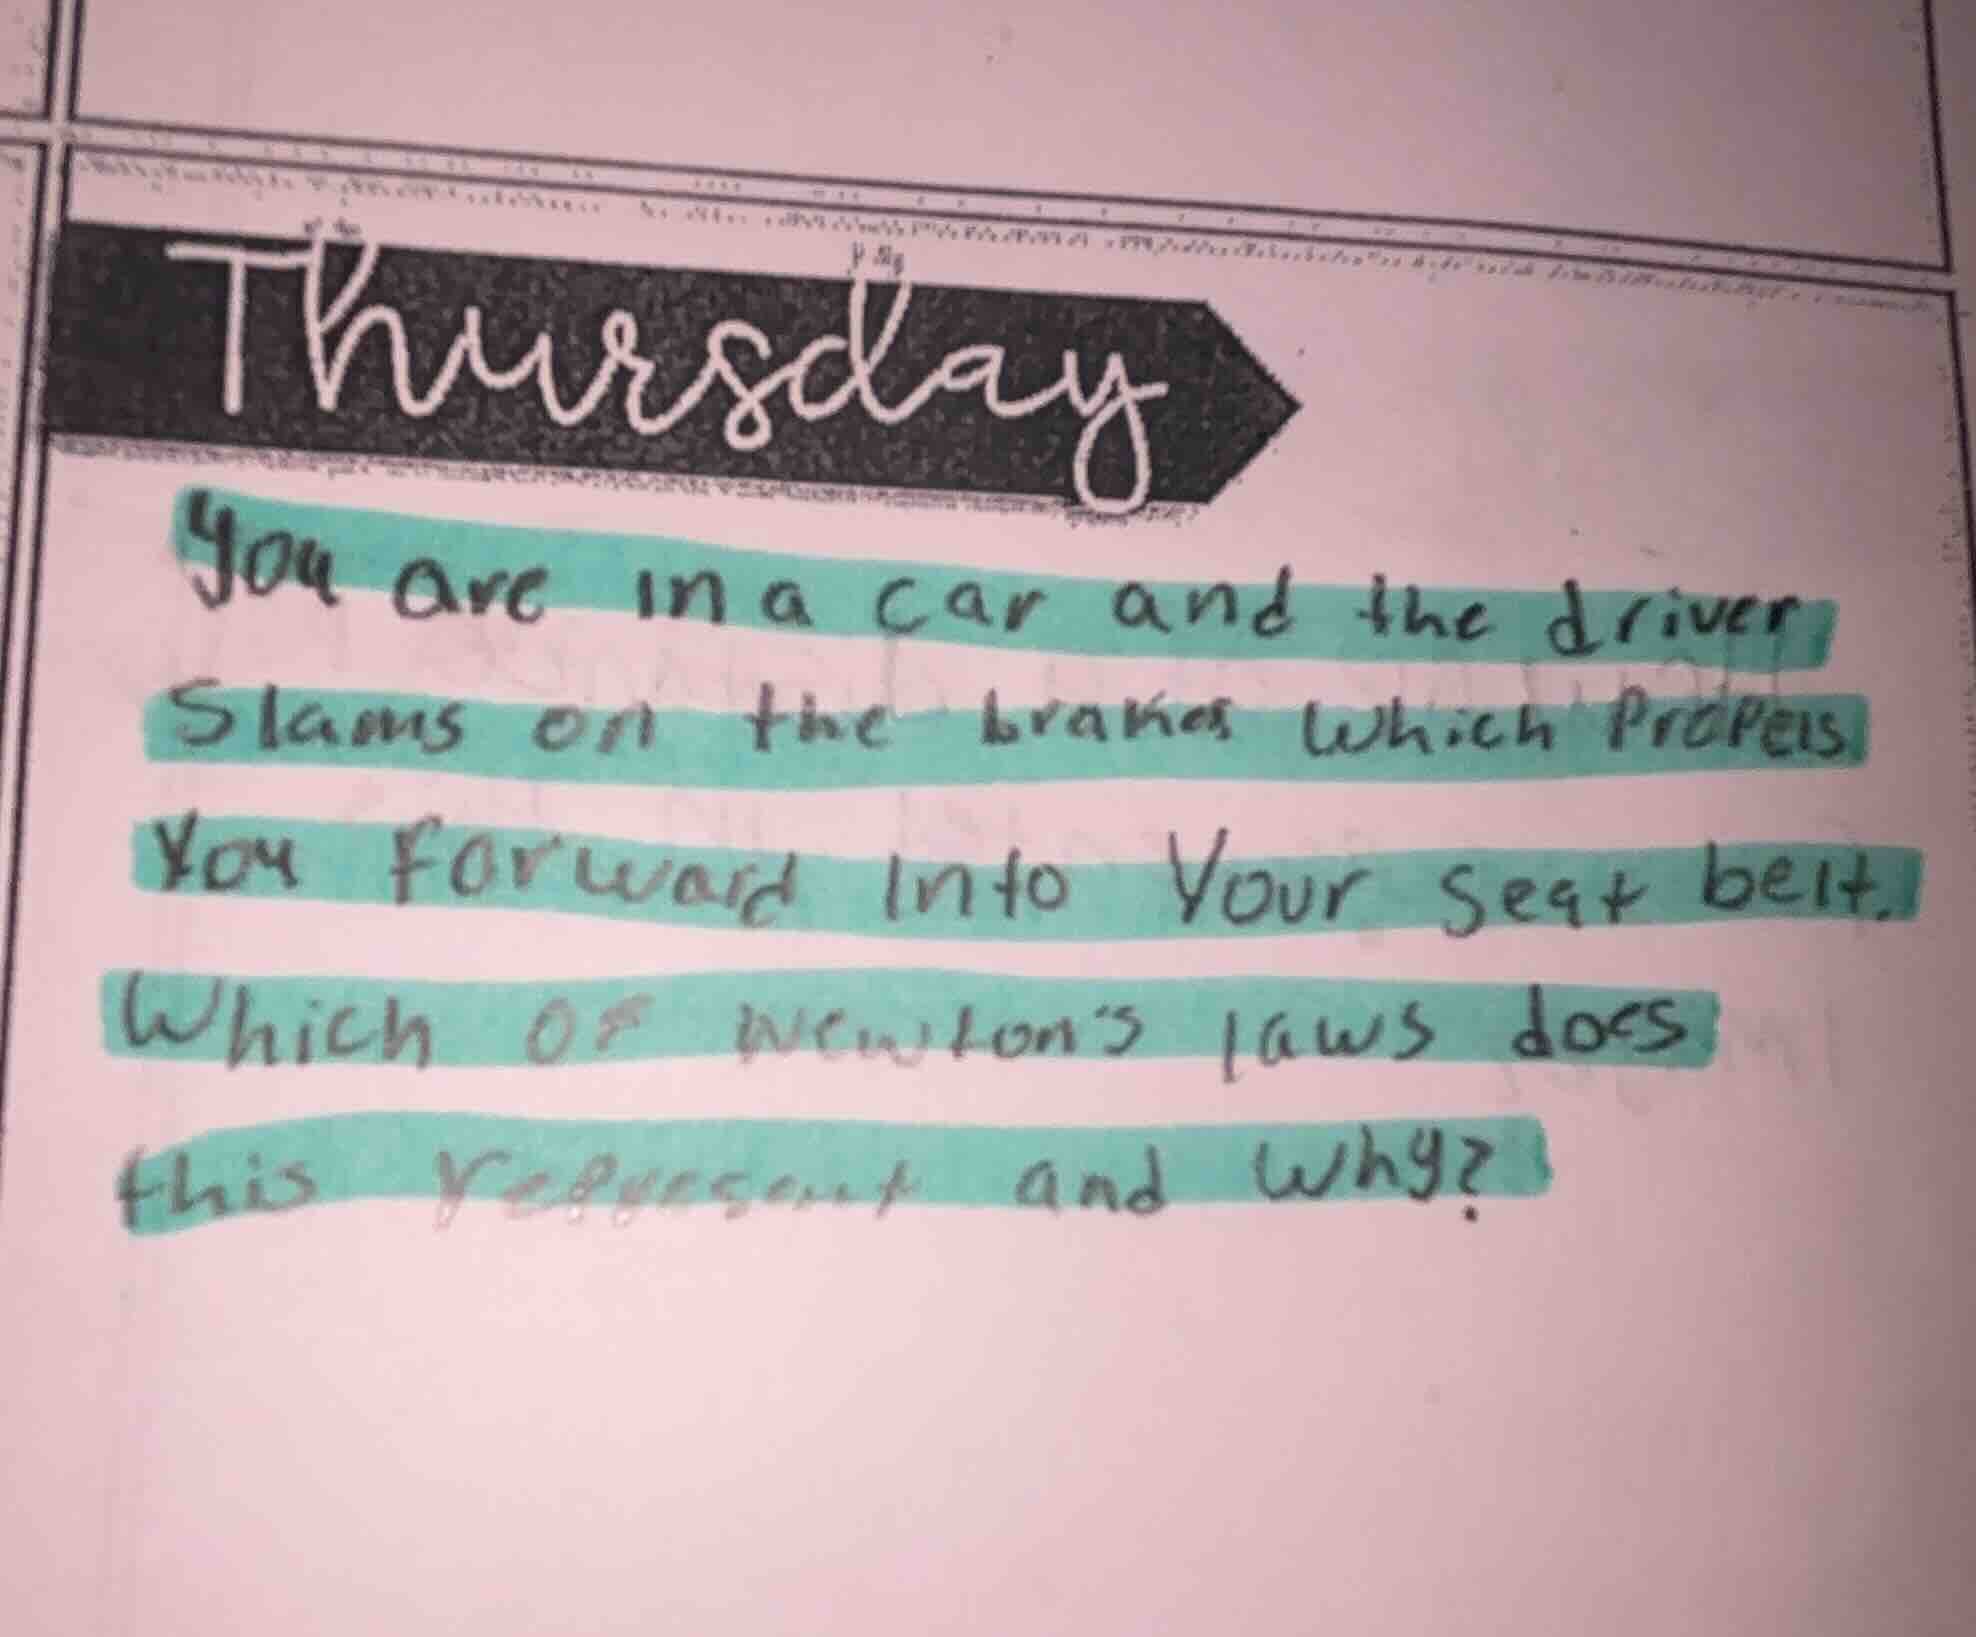 Thursday
You are in a car and the driver
Slams on the brakes which Propels
You forward into Your seat belt.
Which of Newton's laws does
this represent and why?